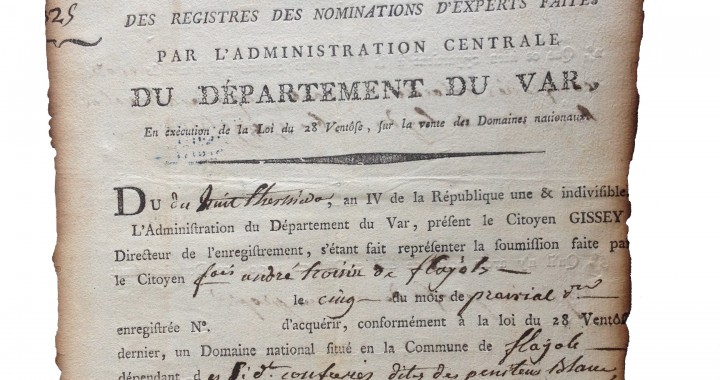 525
DES REGISTRES DES NOMINATIONS D'EXPERTS FAITES
PAR L'ADMINISTRATION CENTRALE
DU DÉPARTEMENT DU VAR,
En exécution de la Loi du 28 Ventôse, sur la vente des Domaines nationaux.
DU du huit thermidor, an IV de la République une & indivisible,
L'Administration du Département du Var, présent le Citoyen GISSEY
Directeur de l'enregistrement, s'étant fait représenter la soumission faite par
le Citoyen fois andré troisin de flayols
le cinq du mois de prairial dr
enregistrée N°. d'acquérir, conformément à la loi du 28 Ventôse
dernier, un Domaine national situé en la Commune de flayols
dépendant des confrères dites des penitens blancs